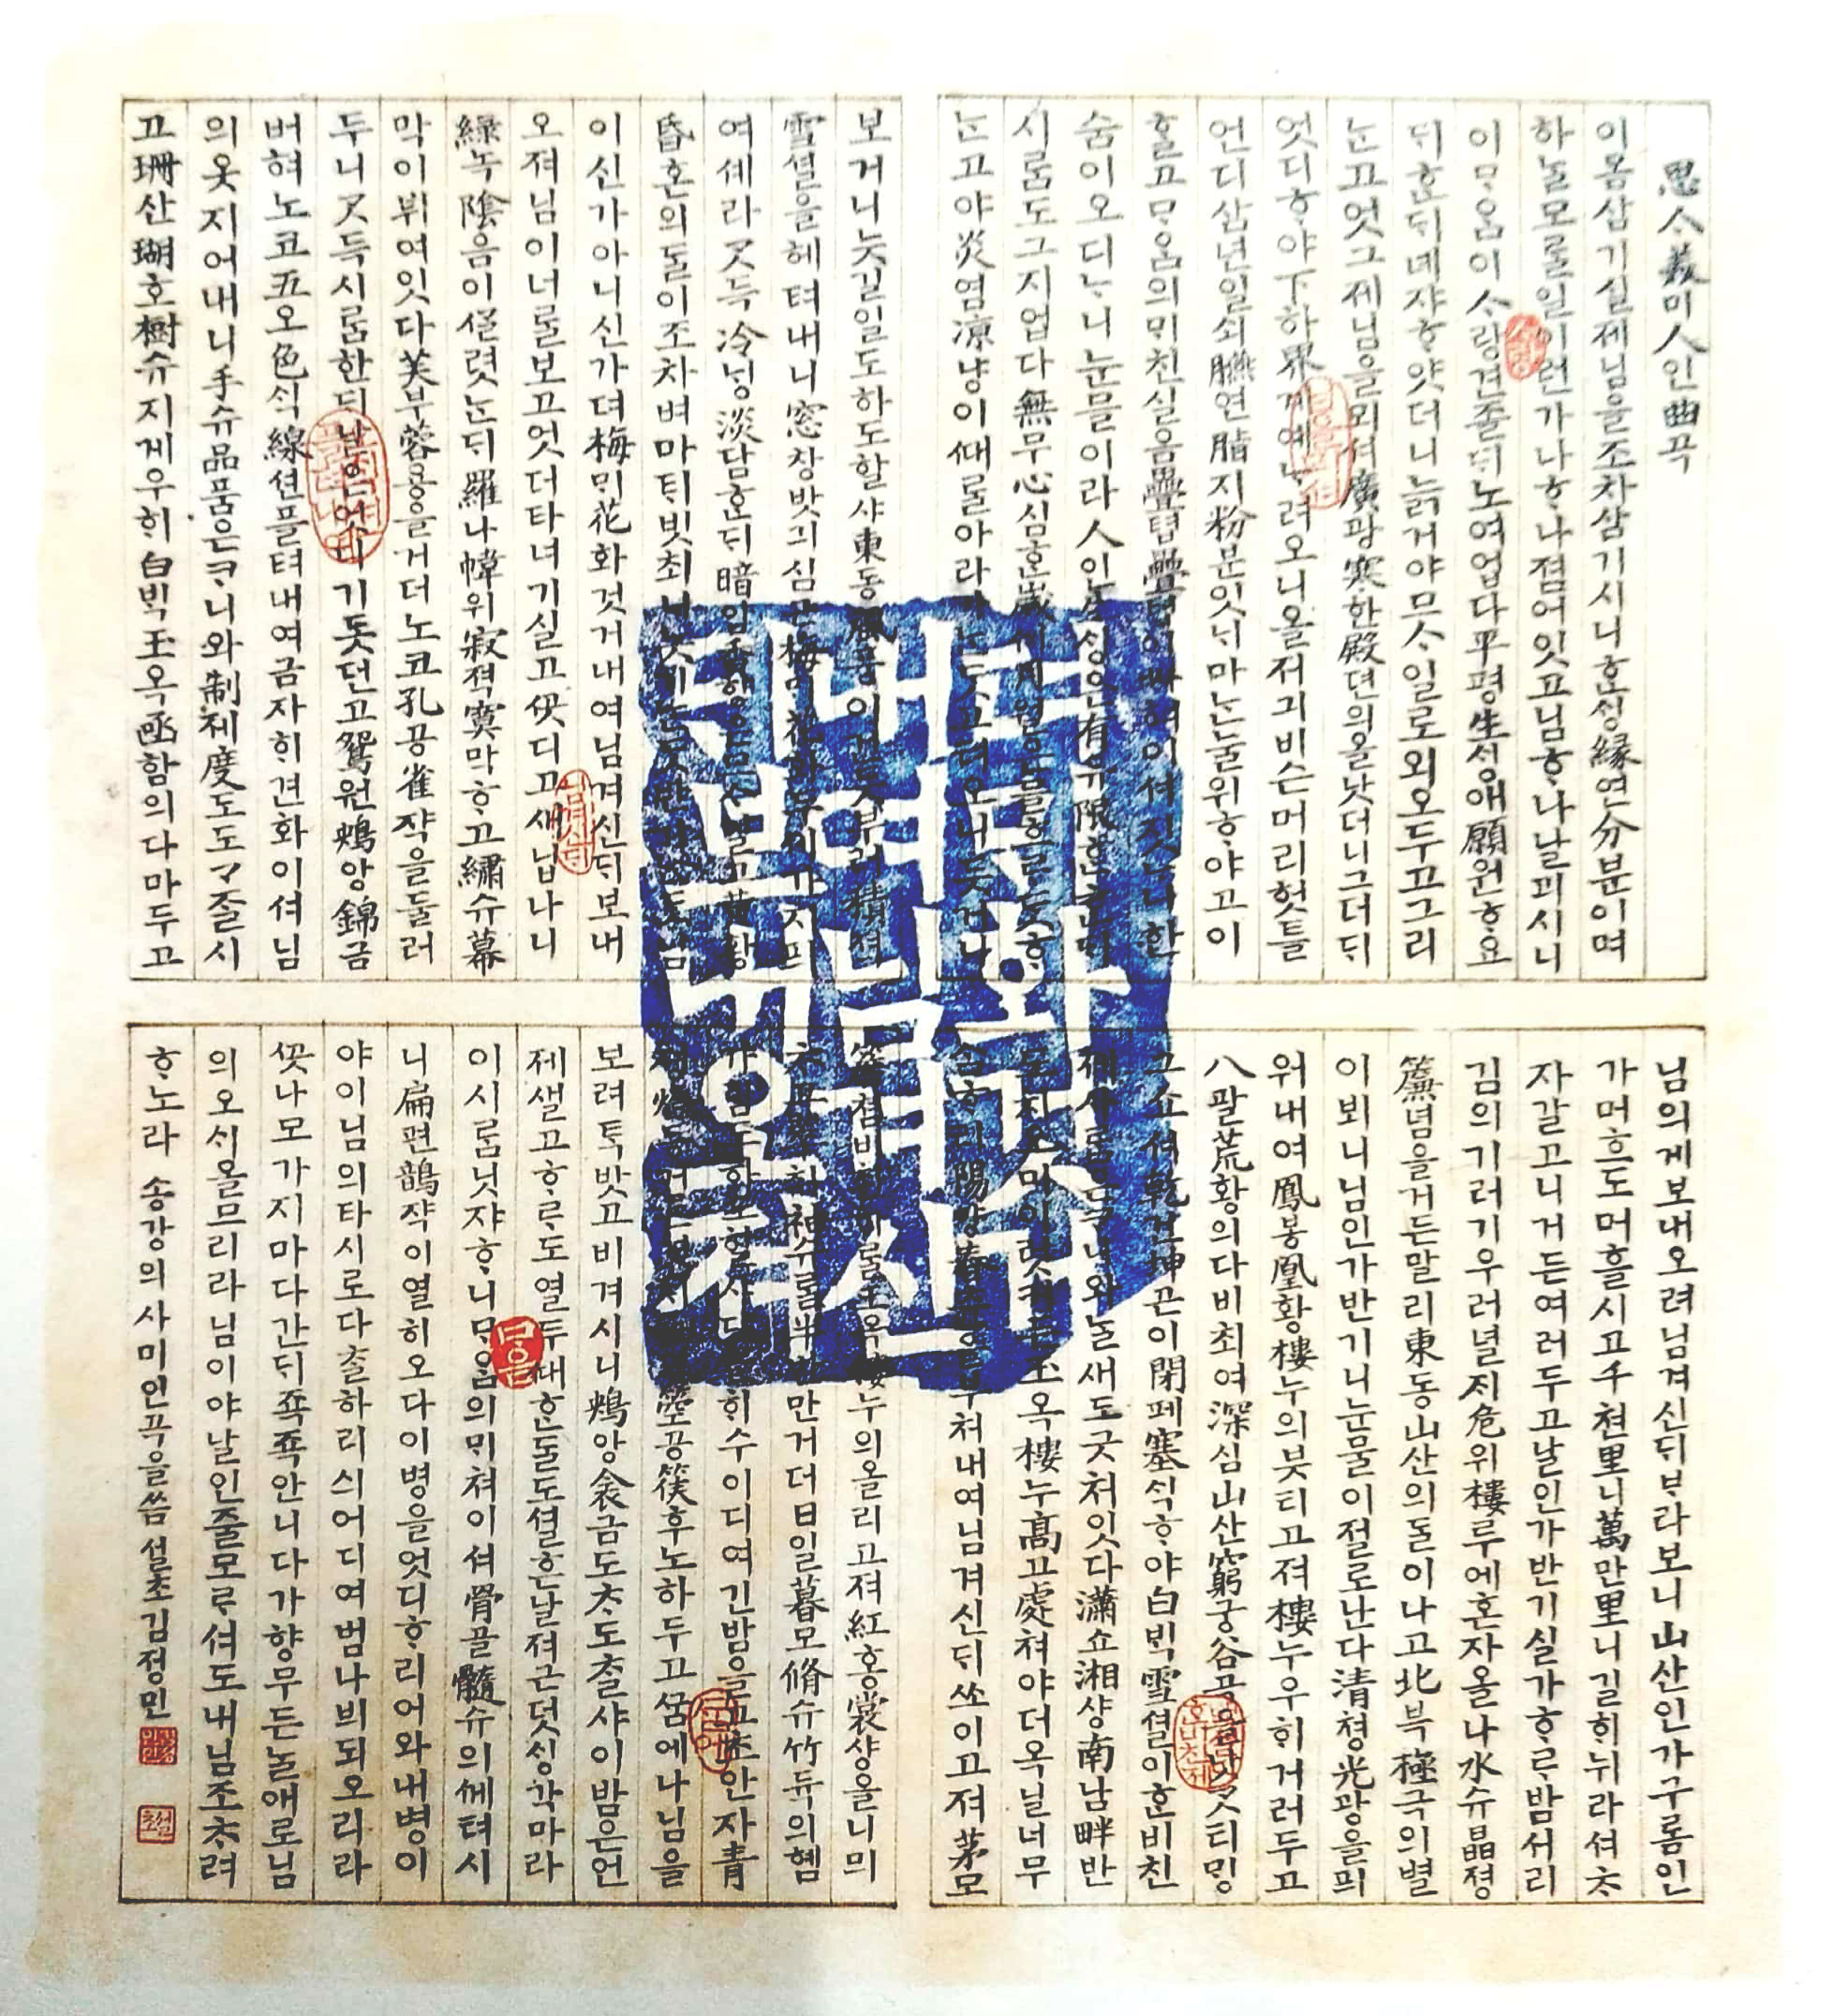 思ᄉᆞ美미人인曲곡
이몸삼기실제님을조차삼기시니ᄒᆞᆫᄉᆡᆼ緣연分분이며
하ᄂᆞᆯ모ᄅᆞᆯ일이런가나ᄒᆞ나졈어잇고님ᄒᆞ나날괴시니
이ᄆᆞᄋᆞᆷ이ᄉᆞ랑견졸ᄃᆡ노여업다平평生ᄉᆡᆼ애願원ᄒᆞ요
ᄃᆡᄒᆞᆫᄃᆡ녜쟈ᄒᆞ얏더니늙거야므ᄉᆞ일로외오두고그리
ᄂᆞᆫ고엇그제님을뫼셔廣광寒한殿뎐의올낫더니그더ᄃᆡ
엇디ᄒᆞ야下하界계예ᄂᆞ려오니올저긔비슨머리헛틀
언디삼년일쇠臙연脂지粉분잇ᄂᆡ마ᄂᆞᆫ눌위ᄒᆞ야고이
ᄒᆞᆯ고ᄆᆞᄋᆞᆷ의ᄆᆡ친실음疊텹疊텹이ᄡᅡ여이셔짓ᄂᆞ니한
숨이오디ᄂᆞ니눈믈이라人인生ᄉᆡᆼ은有유限ᄒᆞᆫᄃᆡ
시ᄅᆞᆷ도그지업다無무心심ᄒᆞᆫ歲셰月월은믈흐ᄅᆞᄃᆞᆺᄒᆞ
ᄂᆞᆫ고야炎염凉냥이ᄣᅢᄅᆞᆯ아라가ᄂᆞᆫᄃᆞᆺ고텨오니듯거니
보거니늣길일도하도할샤東동風풍이건듯부러積젹
雪셜을헤텨내니窓창밧긔심근梅ᄆᆡ花화두세가지픠
여셰라ᄀᆞᆺ득冷ᄂᆡᆼ淡담ᄒᆞᆫᄃᆡ暗암香향은므ᄉᆞ일고黃황
昏혼의ᄃᆞᆯ이조차벼마ᄐᆡ빗최니늣기ᄂᆞᆫᄃᆞᆺ반기ᄂᆞᆫᄃᆞᆺ님
이신가아니신가뎌梅ᄆᆡ花화것거내여님겨신ᄃᆡ보내
오져님이너ᄅᆞᆯ보고엇더타녀기실고ᄭᅩᆺ디고새닙나니
綠녹陰음이ᄭᆞᆯ렷ᄂᆞᆫᄃᆡ羅나幃위寂젹寞막ᄒᆞ고繡슈幕
막이뷔여잇다芙부蓉용을거더노코孔공雀쟉을둘러
두니ᄀᆞᆺ득시ᄅᆞᆷ한ᄃᆡ날은엇디기돗던고鴛원鴦앙錦금
버혀노코五오色ᄉᆡᆨ線션플텨내여금자ᄒᆡ견화이셔님
의옷지어내니手슈品품은ᄏᆞ니와制제度도도ᄀᆞᄌᆞᆯ시
고珊산瑚호樹슈지게우ᄒᆡ白ᄇᆡᆨ玉옥函함의다마두고
님의게보내오려님겨신ᄃᆡᄇᆞ라보니山산인가구롬인
가머흐도머흘시고千쳔里니萬만里니길ᄒᆡ뉘라셔ᄎᆞ
자갈고니거든여러두고날인가반기실가ᄒᆞᄅᆞ밤서리
김의기러기우러녈제危위樓루에혼자올나水슈晶졍
簾념을거든말리東동山산의ᄃᆞᆯ이나고北븍極극의별
이뵈니님인가반기니눈물이절로난다淸쳥光광을ᄑᆡ
워내여鳳봉凰황樓누의븟티고져樓누우ᄒᆡ거러두고
八팔荒황의다비최여深심山산窮궁谷곡을낫ᄀᆞ티ᄆᆡᆼ
그쇼셔乾건坤곤이閉폐塞ᄉᆡᆨᄒᆞ야白ᄇᆡᆨ雪셜이ᄒᆞᆫ비친
제사ᄅᆞᆷ은ᄏᆞ니와ᄂᆞᆯ새도긋처잇다瀟쇼湘샹南남畔반
도치오미이러커든玉옥樓누高고處쳐야더옥닐너무
슴ᄒᆞ리陽양春츈을부쳐내여님겨신ᄃᆡ쏘이고져茅모
簷쳠비쵠ᄒᆡᄅᆞᆯ玉옥樓누의올리고져紅홍裳샹을니믜
ᄎᆞ고翠ᄎᆔ袖슈ᄅᆞᆯ半반만거더日일暮모脩슈竹듁의헴
가림도하도할샤댜ᄅᆞᆫᄒᆡ수이디여긴밤을고초안자靑
쳥燈등거른겻ᄐᆡ鈿뎐空공篌후노하두고ᄭᅮᆷ에나님을
보려ᄐᆞᆨ밧고비겨시니鴦앙衾금도ᄎᆞ도ᄎᆞᆯ샤이밤은언
제샐고ᄒᆞᄅᆞ도열두ᄣᅢᄒᆞᆫᄃᆞᆯ도셜흔날져근덧ᄉᆡᆼ각마라
이시ᄅᆞᆷ닛쟈ᄒᆞ니ᄆᆞᄋᆞᆷ의ᄆᆡ쳐이셔骨골髓슈의ᄭᅦ텨시
니扁편鵲쟉이열히오다이병을엇디ᄒᆞ리어와내병이
야이님의타시로다ᄎᆞᆯ하리싀어디여범나븨되오리라
ᄭᅩᆺ나모가지마다간ᄃᆡ죡죡안니다가향무든ᄂᆞᆯ애로님
의오ᄉᆡ올므리라님이야날인줄모ᄅᆞ셔도내님조ᄎᆞ려
ᄒᆞ노라 송강의사미인곡을씀 설초김정민